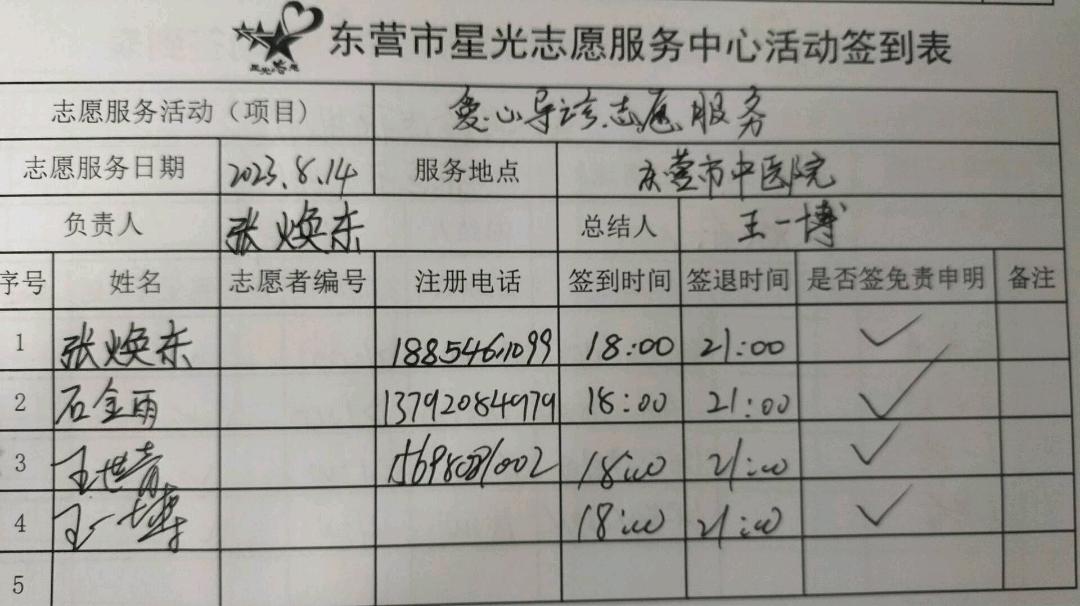 星光志愿
东营市星光志愿服务中心活动签到表
志愿服务活动（项目） 爱心导诊志愿服务
志愿服务日期 2023.8.14 服务地点 东营市中医院
负责人 张焕东 总结人 王一博
序号 姓名 志愿者编号 注册电话 签到时间 签退时间 是否签免责申明 备注
1 张焕东 18854611099 18:00 21:00 ✓
2 石金雨 13792084979 18:00 21:00 ✓
3 王世青 18:00 21:00 ✓
4 王一博 18:00 21:00 ✓
5